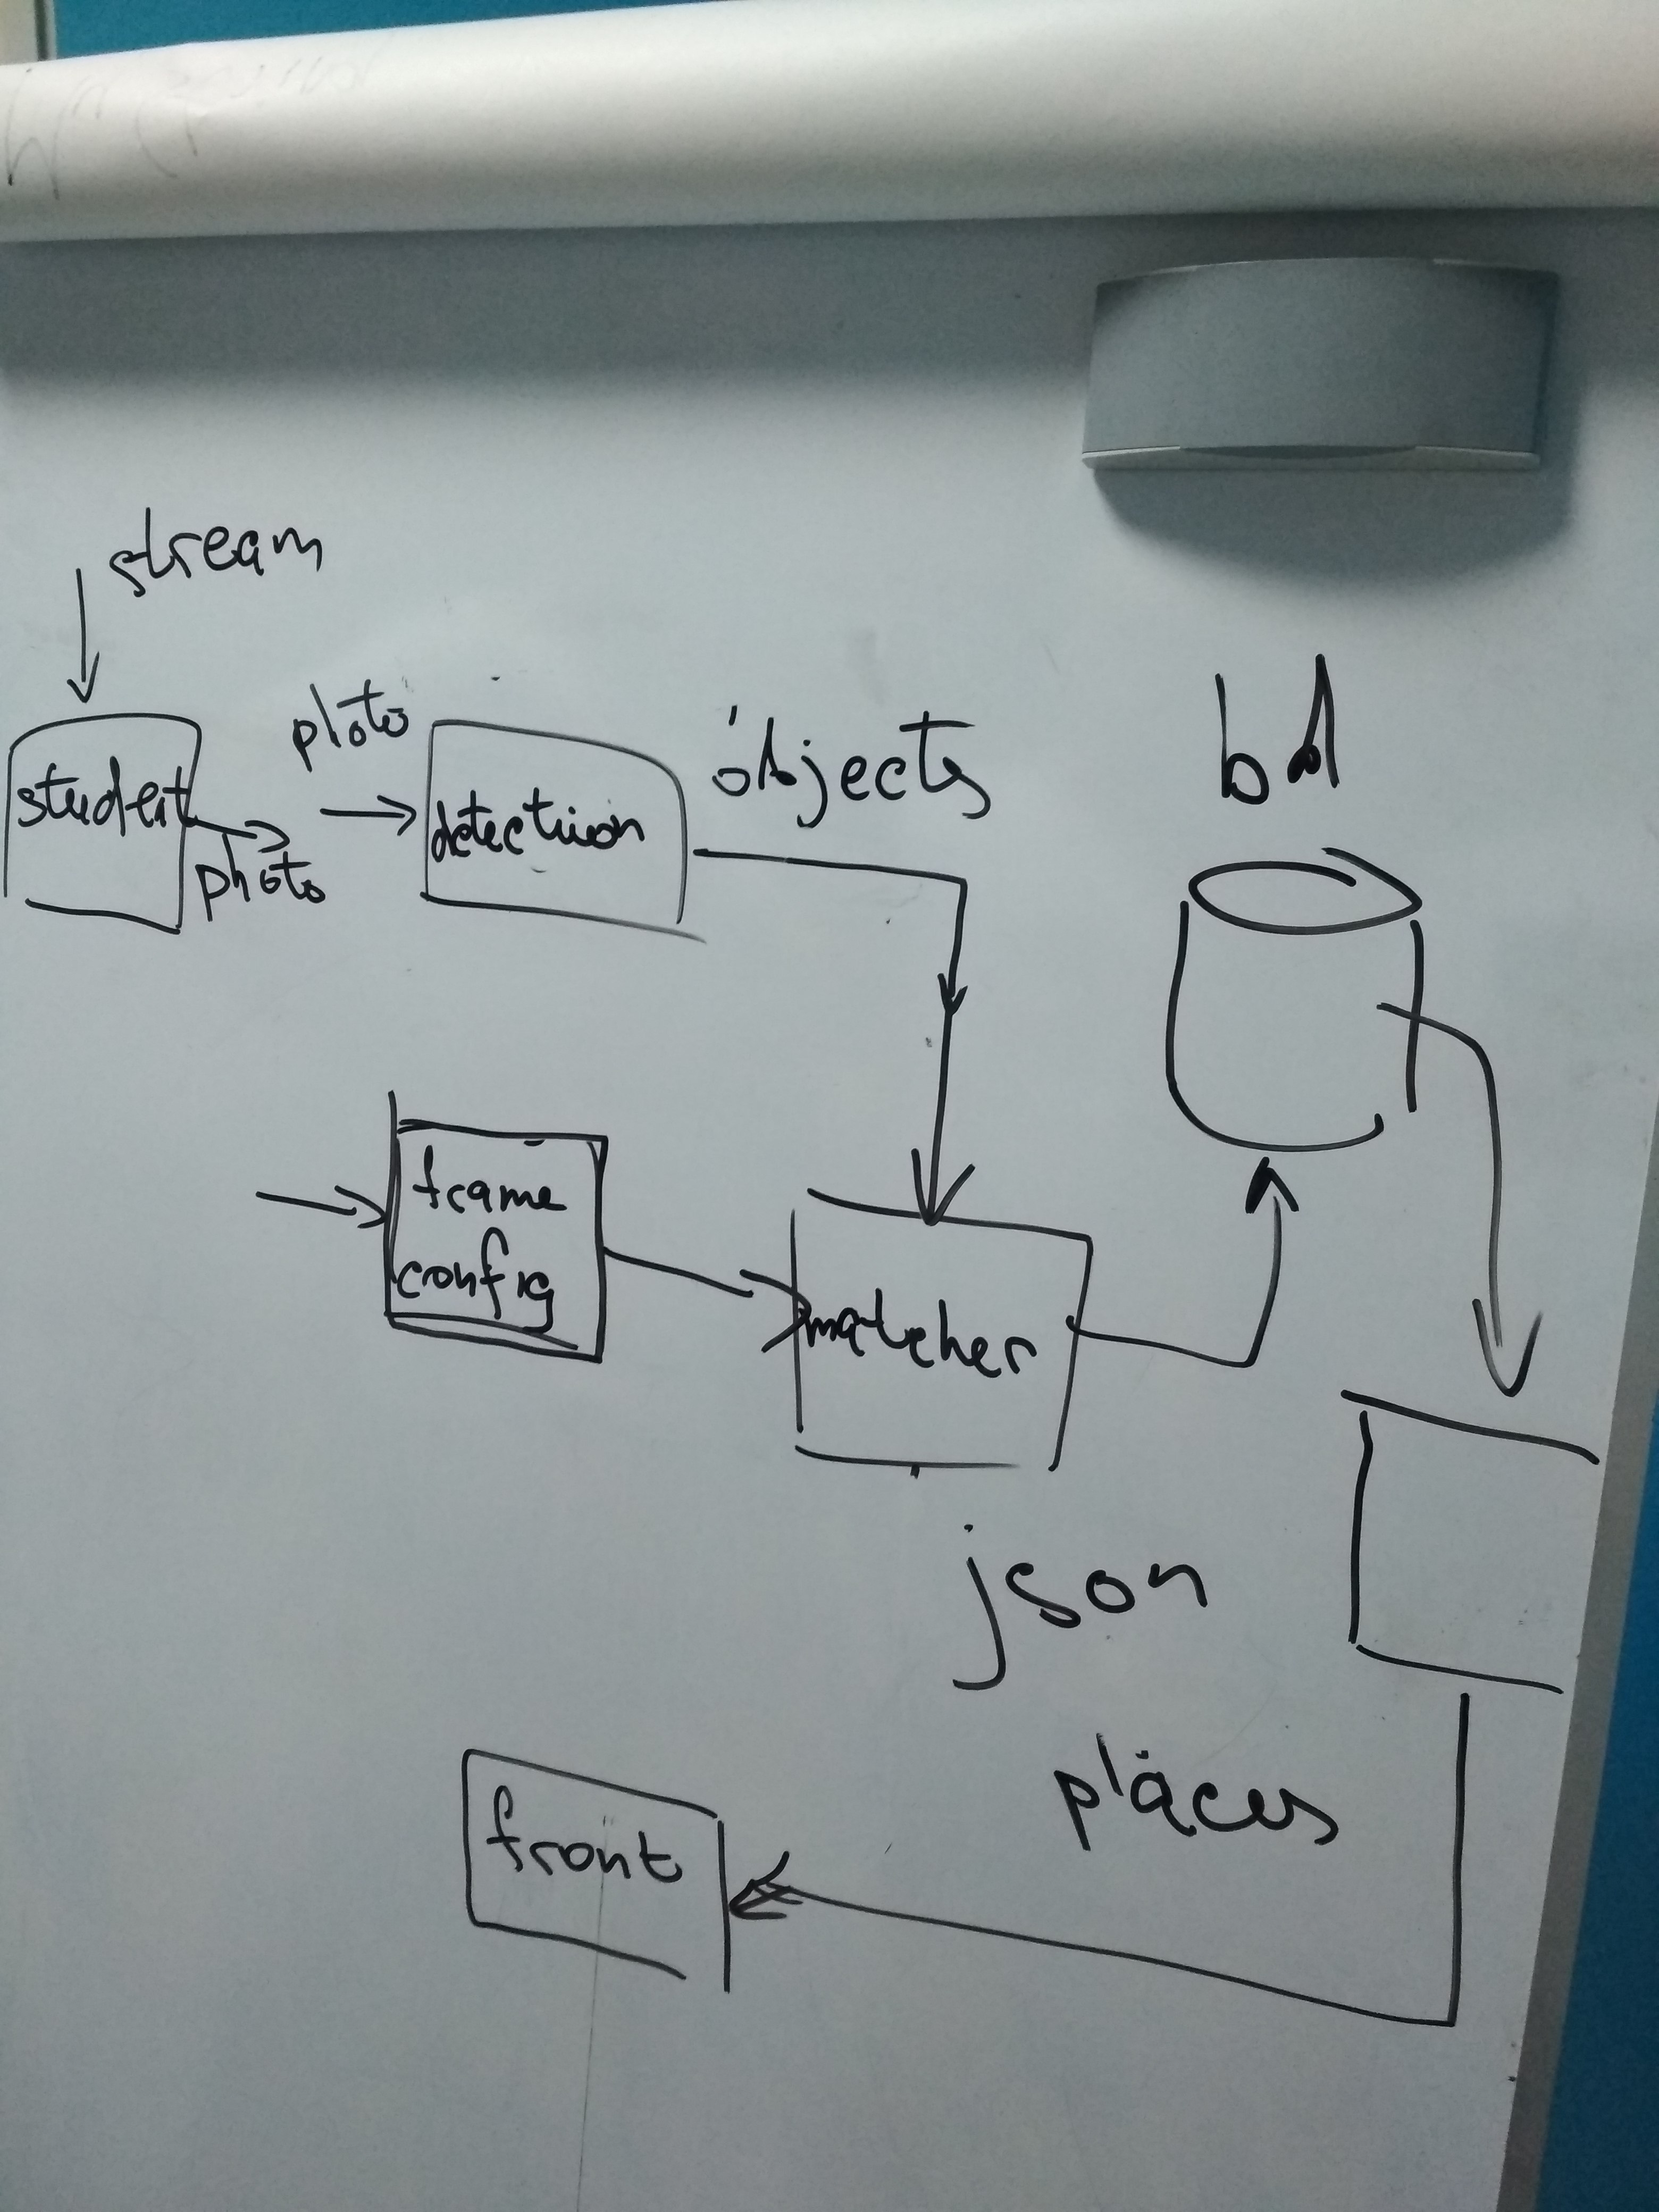 stream
student
photo
photo
detectiion
objects
bd
frame
config
matcher
json
places
front